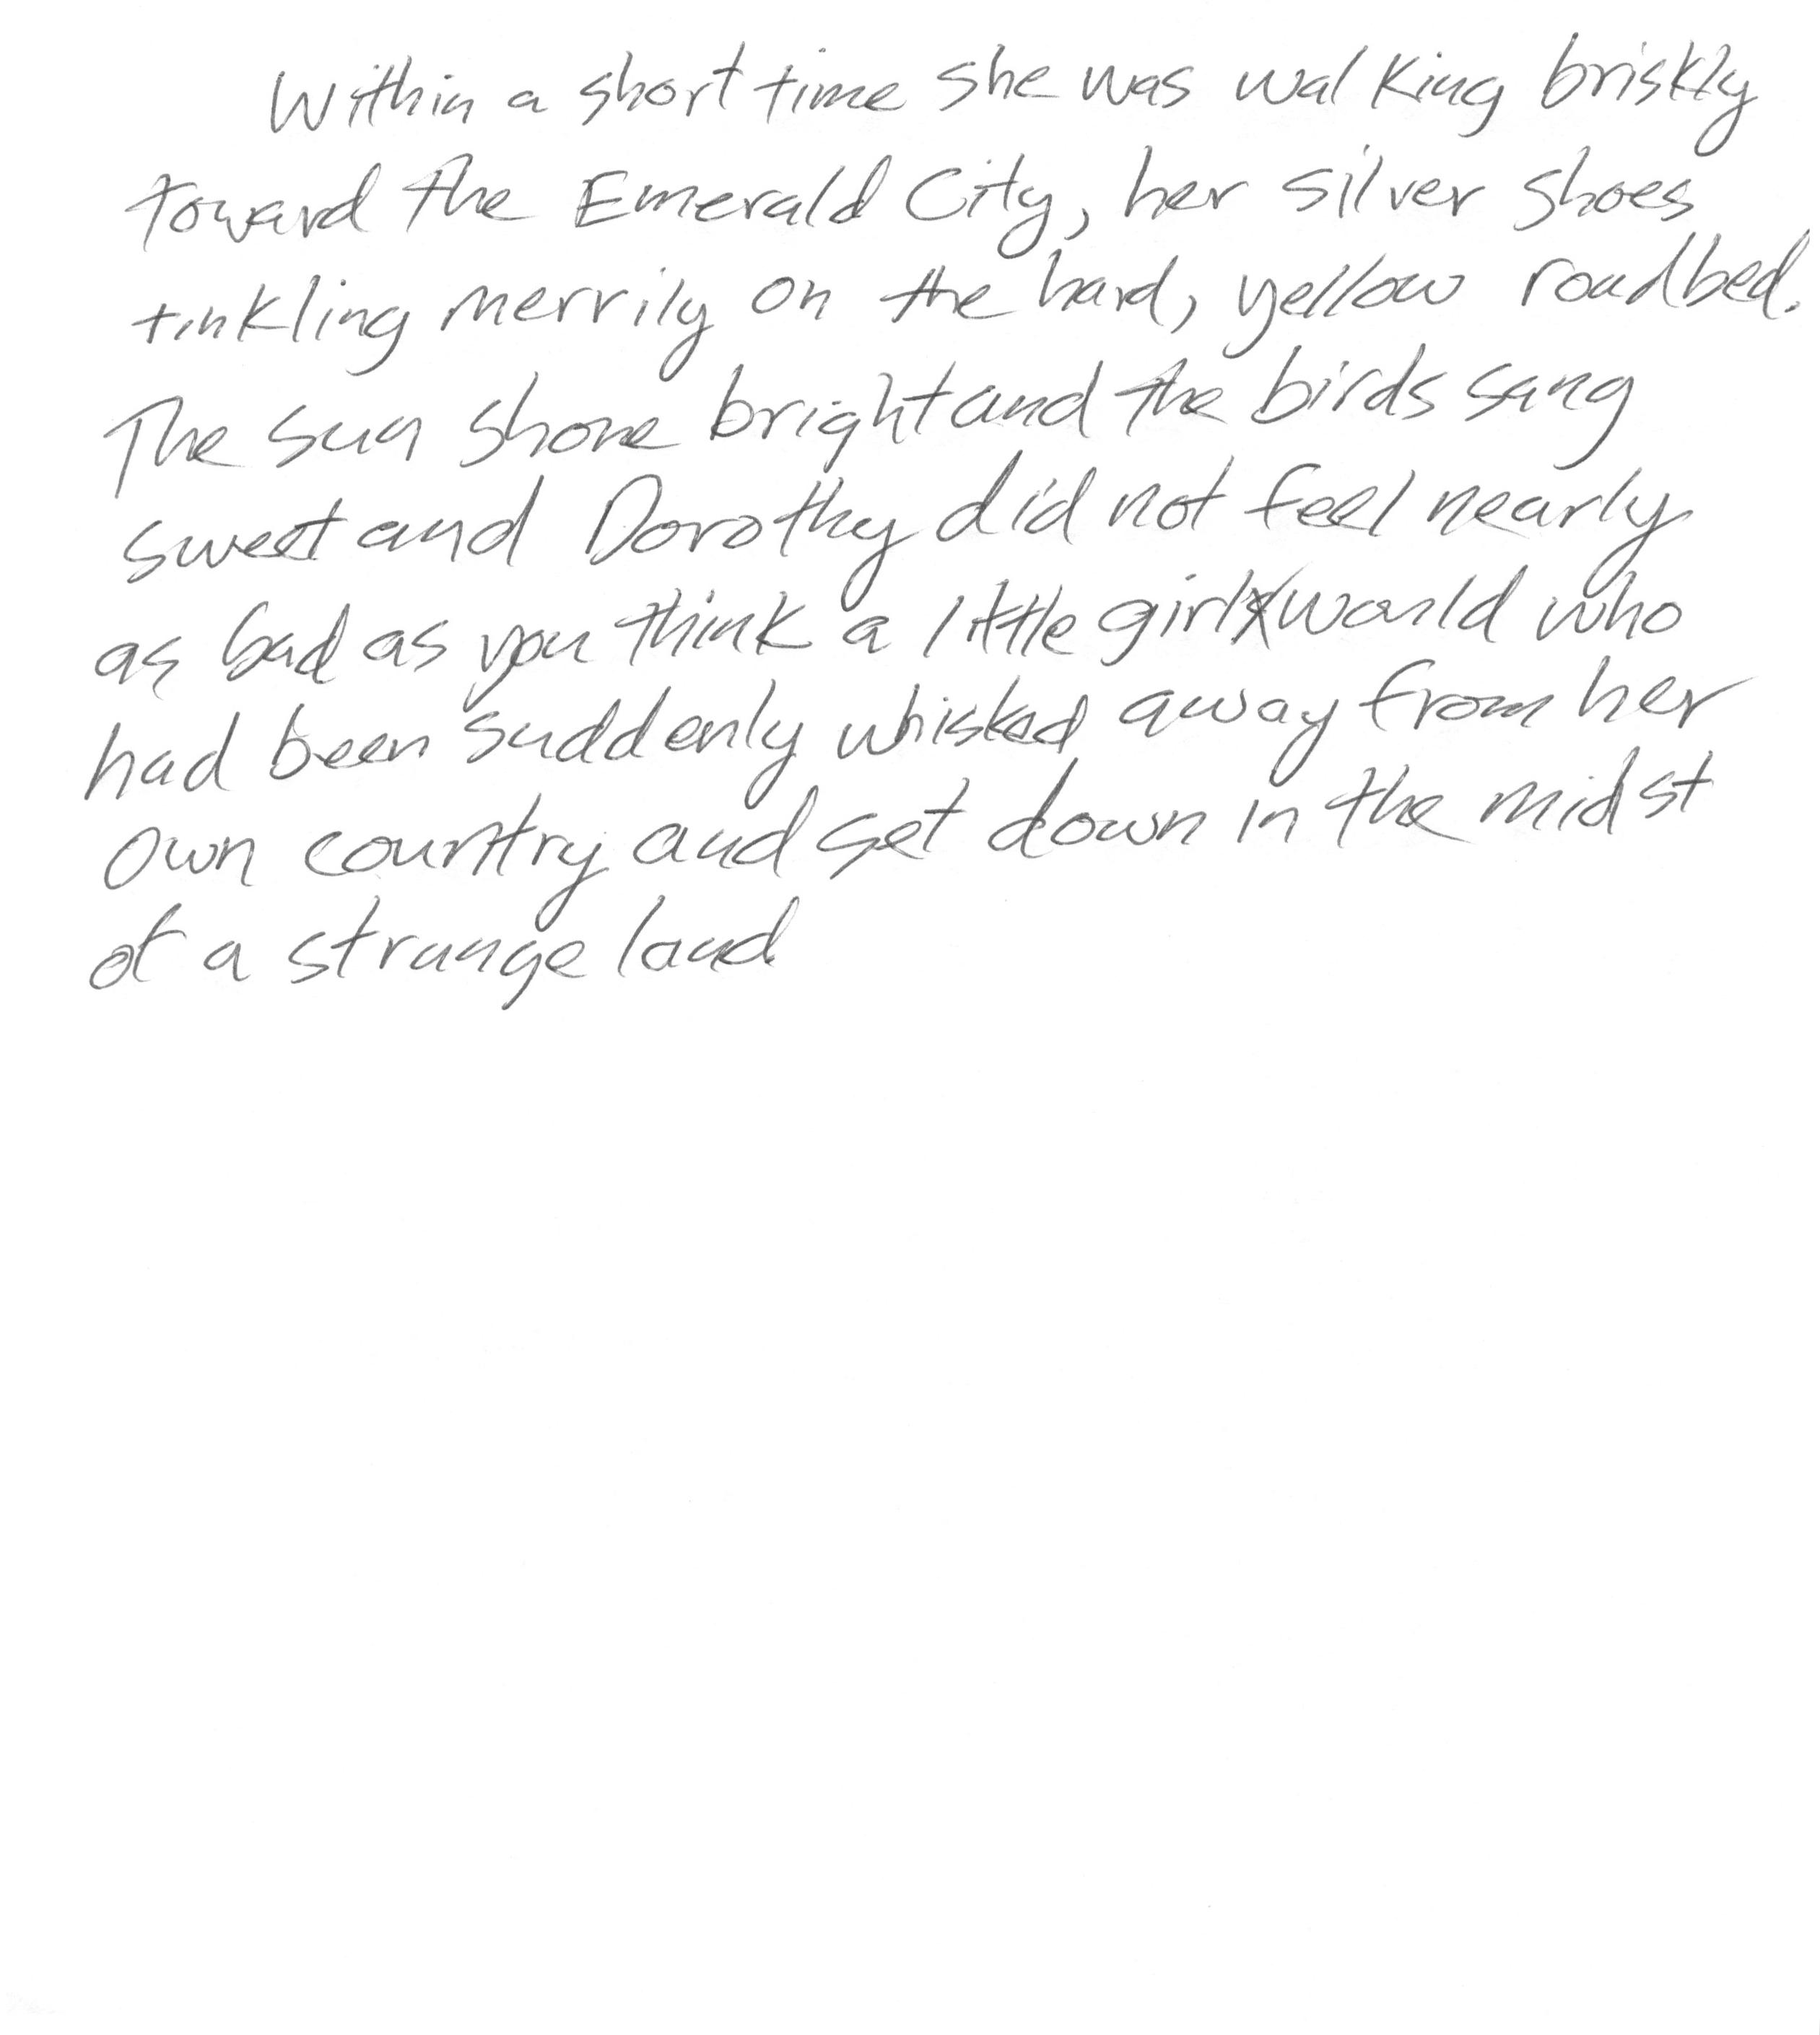 Within a short time she was walking briskly
toward the Emerald City, her silver shoes
tinkling merrily on the hard, yellow roadbed.
The sun shone bright and the birds sang
sweet and Dorothy did not feel nearly
as bad as you think a little girl would who
had been suddenly whisked away from her
own country and set down in the midst
of a strange land